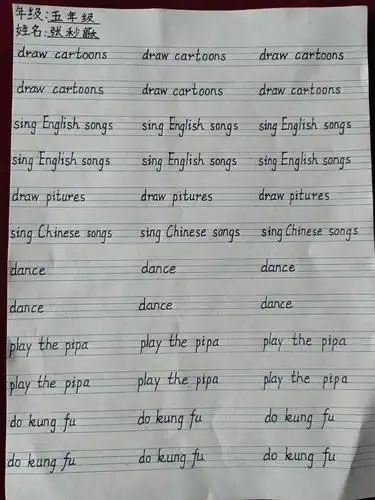 年级:五年级
姓名:张秒
draw cartoons draw cartoons draw cartoons
draw cartoons draw cartoons draw cartoons
sing English songs sing English songs sing English songs
sing English songs sing English songs sing English songs
draw pitures draw pitures draw pitures
sing Chinese songs sing Chinese songs sing Chinese songs
dance dance dance
dance dance dance
play the pipa play the pipa play the pipa
play the pipa play the pipa play the pipa
do kung fu do kung fu do kung fu
do kung fu do kung fu do kung fu